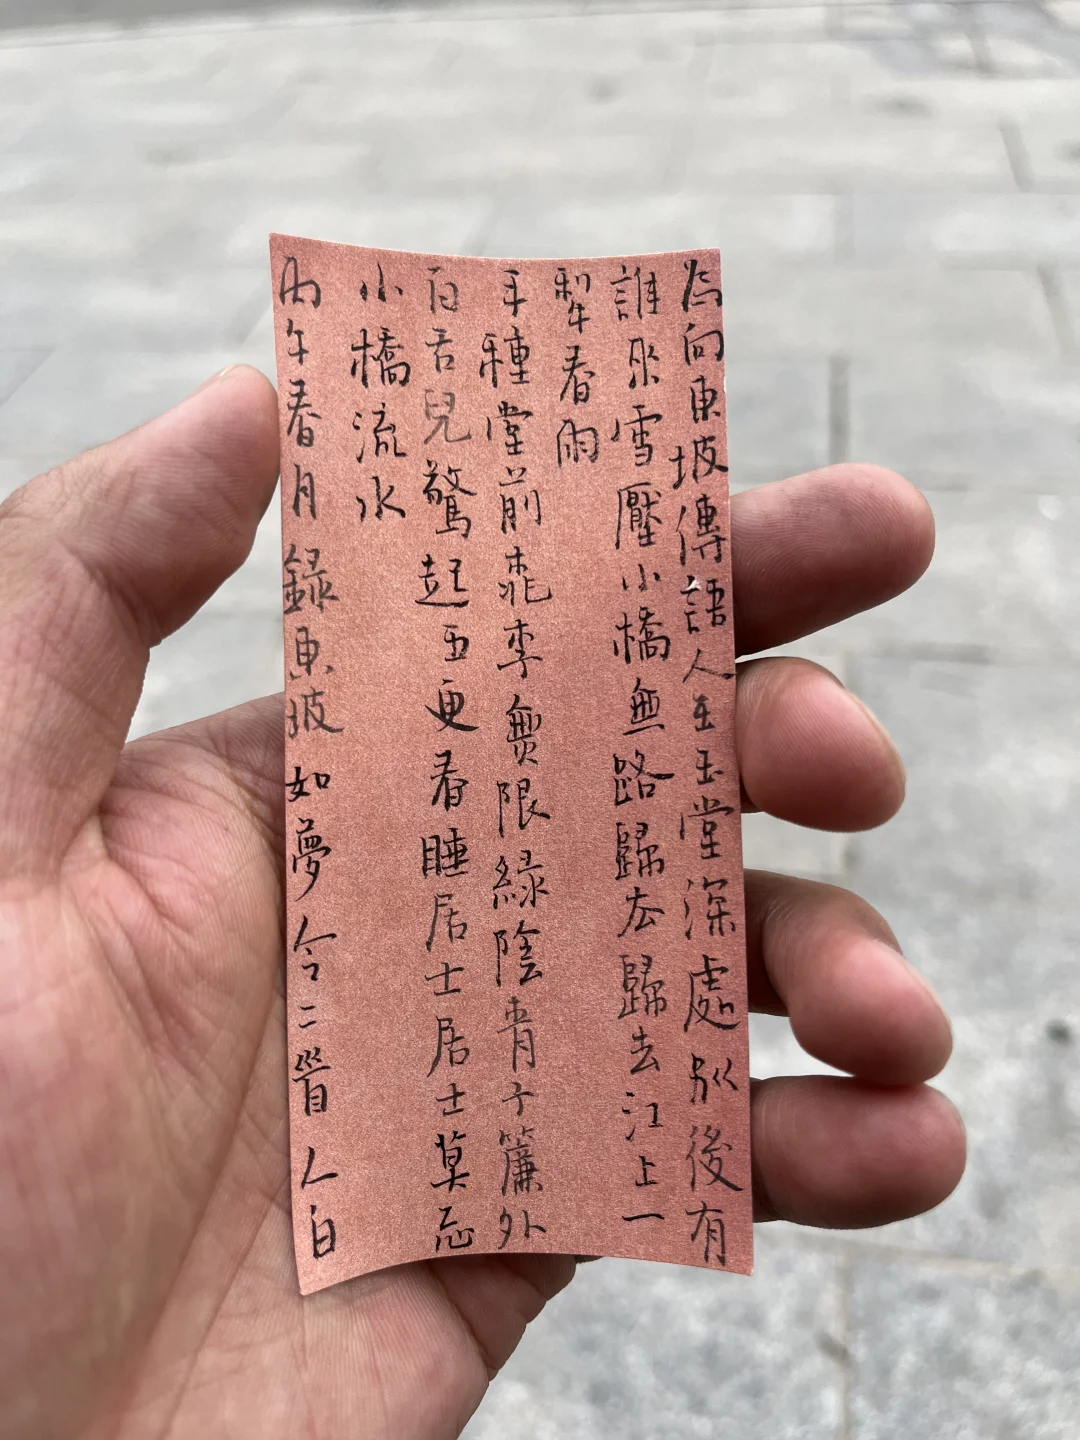 為向東坡傳語人在玉堂深處別後有
誰來雪壓小橋無路歸去歸去江上一
犂春雨
手種堂前桃李無限綠陰青子簾外
百舌兒驚起五更春睡居士居士莫忘
小橋流水
丙午春月錄東坡如夢令二首人白